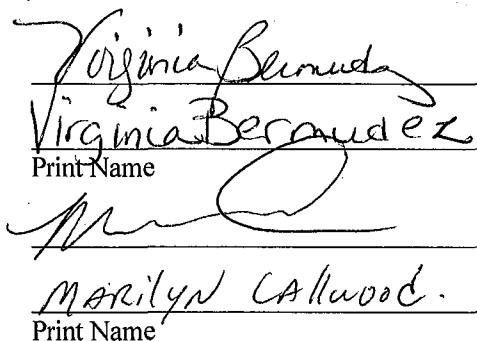 Virginia Bermudez
Virginia Bermudez
Print Name
MARilyN CAllwood.
Print Name